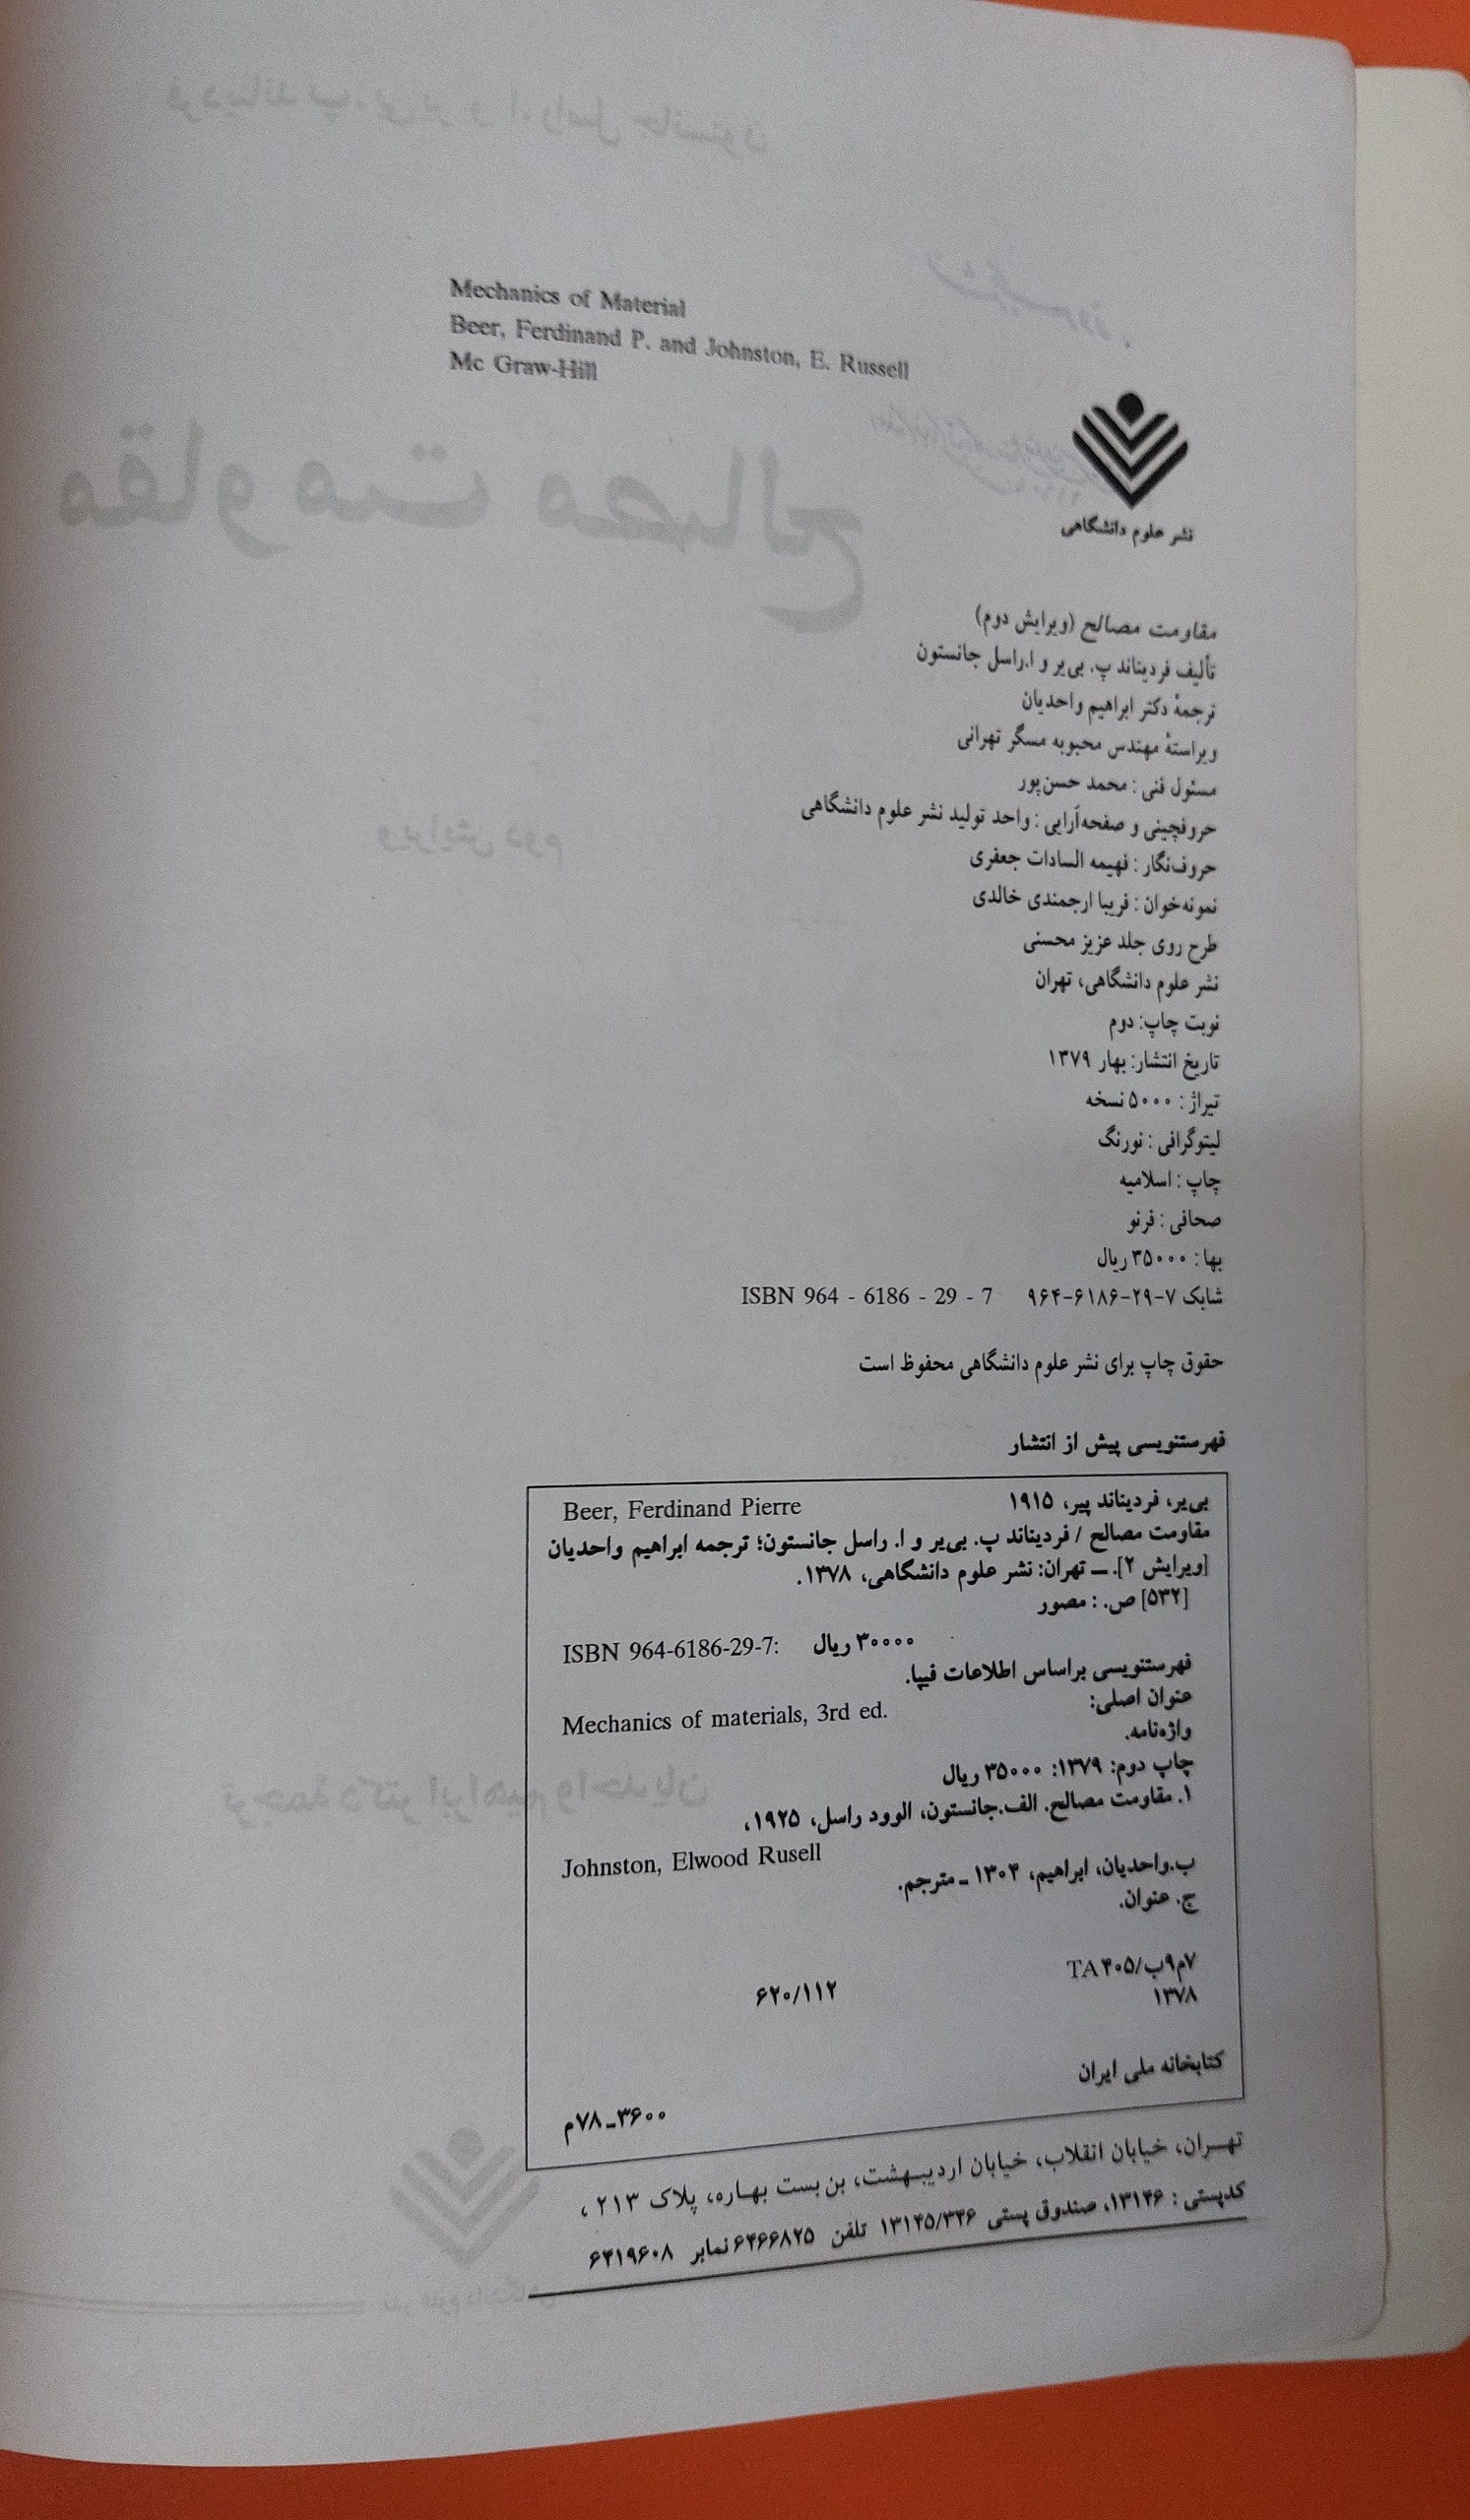 Mechanics of Material
Beer, Ferdinand P. and Johnston, E. Russell
Mc Graw-Hill
نشر علوم دانشگاهی
مقاومت مصالح (ویرایش دوم)
تألیف فردیناند پ. بی‌یر و ا.راسل جانستون
ترجمهٔ دکتر ابراهیم واحدیان
ویراستهٔ مهندس محبوبه مسگر تهرانی
مسئول فنی : محمد حسن‌پور
حروفچینی و صفحه‌آرایی : واحد تولید نشر علوم دانشگاهی
حروف‌نگار : فهیمه السادات جعفری
نمونه‌خوان : فریبا ارجمندی خالدی
طرح روی جلد عزیز محسنی
نشر علوم دانشگاهی، تهران
نوبت چاپ: دوم
تاریخ انتشار: بهار ۱۳۷۹
تیراژ : ۵۰۰۰ نسخه
لیتوگرافی : نورنگ
چاپ : اسلامیه
صحافی : فرنو
بها : ۳۵۰۰۰ ریال
شابک ۷-۲۹-۶۱۸۶-۹۶۴ ISBN 964 - 6186 - 29 - 7
حقوق چاپ برای نشر علوم دانشگاهی محفوظ است
فهرستنویسی پیش از انتشار
بی‌یر، فردیناند پیر، ۱۹۱۵ Beer, Ferdinand Pierre
مقاومت مصالح / فردیناند پ. بی‌یر و ا. راسل جانستون؛ ترجمه ابراهیم واحدیان
[ویرایش ۲]. ـ تهران: نشر علوم دانشگاهی، ۱۳۷۸.
[۵۳۲] ص. : مصور
ISBN 964-6186-29-7: ۳۰۰۰۰ ریال
فهرستنویسی براساس اطلاعات فیپا.
عنوان اصلی: Mechanics of materials, 3rd ed.
واژه‌نامه.
چاپ دوم: ۱۳۷۹: ۳۵۰۰۰ ریال
۱. مقاومت مصالح. الف.جانستون، الوود راسل، ۱۹۲۵،
Johnston, Elwood Rusell
ب.واحدیان، ابراهیم، ۱۳۰۳ ـ مترجم.
ج. عنوان.
۷م۹ب/TA ۴۰۵
۶۲۰/۱۱۲ ۱۳۷۸
کتابخانه ملی ایران
۳۶۰۰ـ۷۸م
تهران، خیابان انقلاب، خیابان اردیبهشت، بن‌بست بهاره، پلاک ۲۱۳ ،
کدپستی : ۱۳۱۴۶، صندوق پستی ۱۳۱۴۵/۳۴۶ تلفن ۶۴۶۶۸۲۵ نمابر ۶۴۱۹۶۰۸